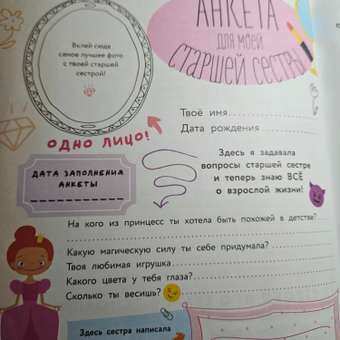 АНКЕТА
для моей
СТАРШЕЙ СЕСТРЫ
Вклей сюда
самое лучшее фото
с твоей старшей
сестрой!
Твоё имя
Дата рождения
ОДНО ЛИЦО!
ДАТА ЗАПОЛНЕНИЯ
АНКЕТЫ
Здесь я задавала
вопросы старшей сестре
и теперь знаю ВСЁ
о взрослой жизни!
На кого из принцесс ты хотела быть похожей в детстве?
Какую магическую силу ты себе придумала?
Твоя любимая игрушка
Какого цвета у тебя глаза?
Сколько ты весишь?
Здесь сестра написала